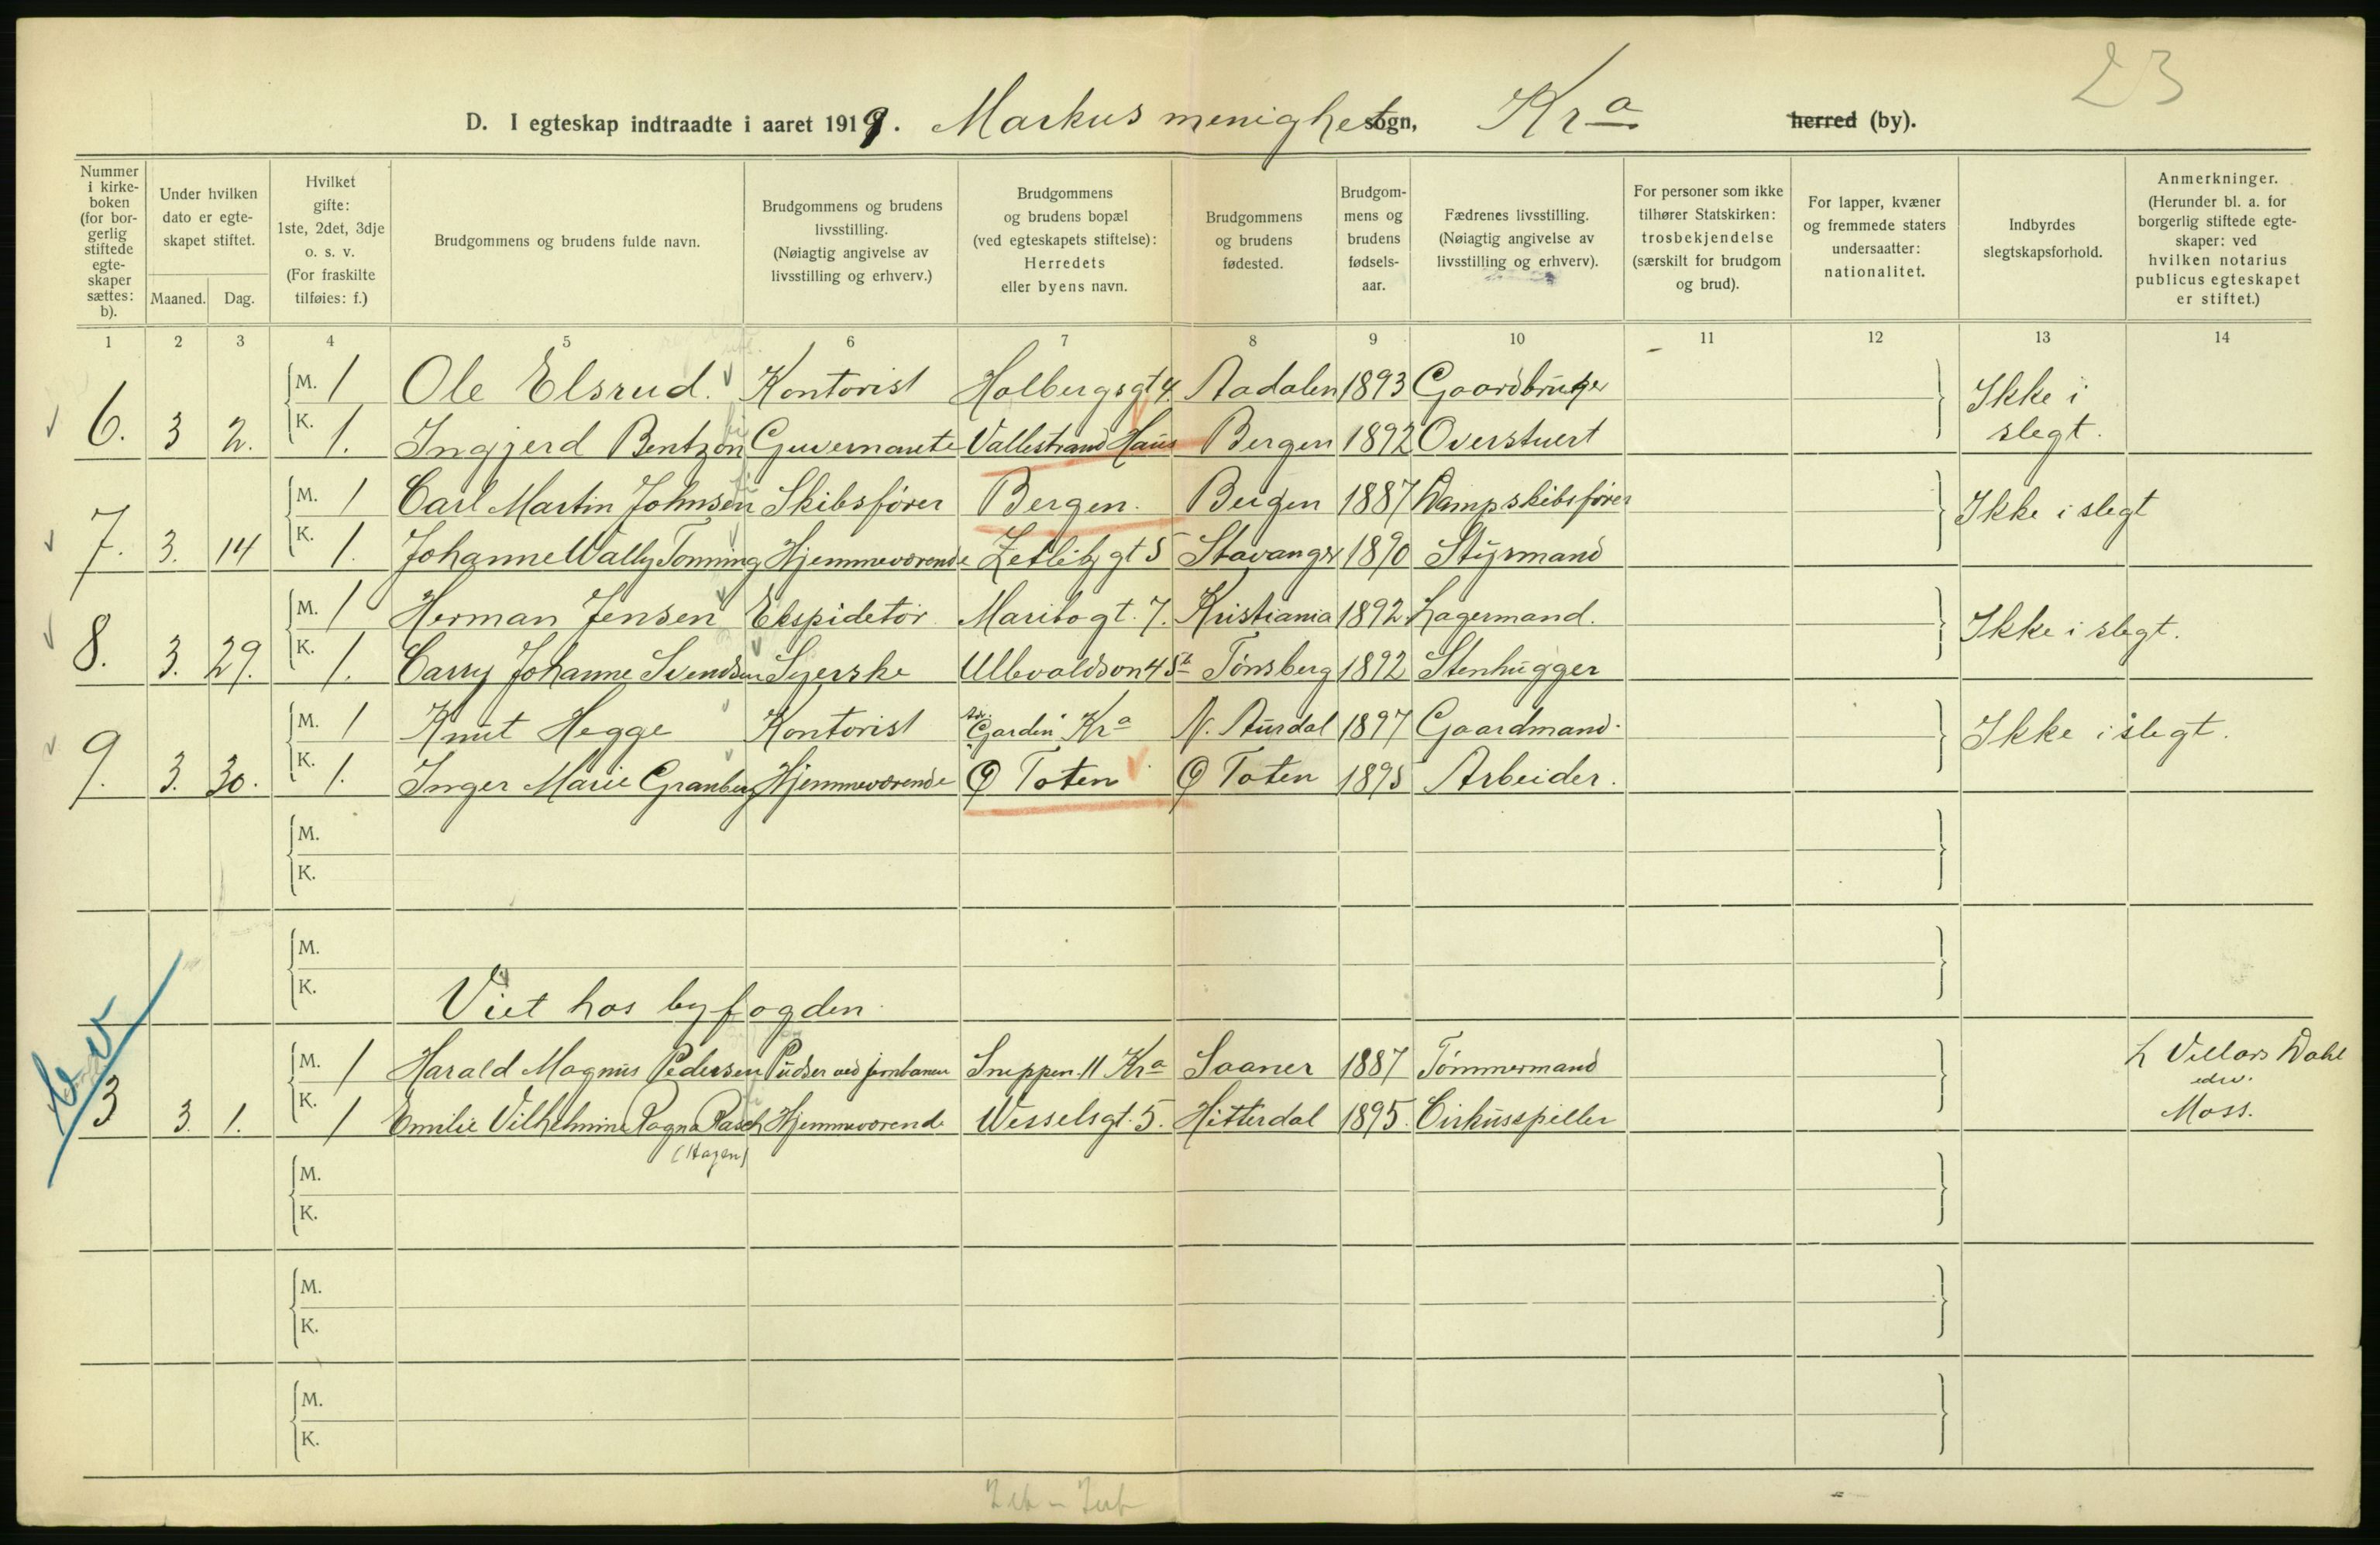 23
D. I egteskap indtraadte i aaret 1919. Markus menighet sogn, Kra herred (by).
Nummer i kirkeboken (for borgerlig stiftede egteskaper sættes: b).
Under hvilken dato er egteskapet stiftet.
Maaned. Dag.
Hvilket gifte: 1ste, 2det, 3dje o. s. v. (For fraskilte tilføies: f.)
Brudgommens og brudens fulde navn.
Brudgommens og brudens livsstilling. (Nøiagtig angivelse av livsstilling og erhverv.)
Brudgommens og brudens bopæl (ved egteskapets stiftelse): Herredets eller byens navn.
Brudgommens og brudens fødested.
Brudgommens og brudens fødselsaar.
Fædrenes livsstilling. (Nøiagtig angivelse av livsstilling og erhverv).
For personer som ikke tilhører Statskirken: trosbekjendelse (særskilt for brudgom og brud).
For lapper, kvæner og fremmede staters undersaatter: nationalitet.
Indbyrdes slegtskapsforhold.
Anmerkninger. (Herunder bl. a. for borgerlig stiftede egteskaper: ved hvilken notarius publicus egteskapet er stiftet.)
1 2 3 4 5 6 7 8 9 10 11 12 13 14
M. 1 Ole Elsrud. Kontorist Holbergsgt 4. Aadalen 1893 Gaardbruger Ikke i
6. 3 2. K. 1. Ingjerd Bentzon Guvernante Vallestrand Haus Bergen 1892 Overstuert slegt.
M. 1 Carl Martin Johnsen Skibsfører Bergen. Bergen 1887 Dampskibsfører Ikke i slegt
7. 3. 14 K. 1. Johanne Wally Tonning Hjemmeværende Zetlitz gt 5 Stavanger 1890 Styrmand
M. 1 Herman Jensen Ekspiditør Maribogt. 7. Kristiania 1892 Lagermand. Ikke i slegt.
8. 3. 29. K. 1. Carry Johanne Svendsen Syerske Ullevoldson 45b Tønsberg 1892 Stenhugger
M. 1 Knut Hegge Kontorist "Gardin" Kra N. Aurdal 1897 Gaardmand. Ikke i slegt.
9. 3. 30. K. 1. Inger Marie Granberg Hjemmeværende Ø Toten Ø Toten 1895 Arbeider.
M.
K.
M.
K. Viet hos byfogden
M. 1 Harald Magnus Pedersen Pudser ved jernbanen Snippen 11 Kra Saaner 1887 Tømmermand L Villars Dahl
edw.
3 3. 1. K. 1 Emilie Vilhelmine Ragna Rasch Hjemmeværende Wesselsgt. 5. Hitterdal 1895. Cirkusspiller Moss.
(Hagen)
M.
K.
M.
K.
M.
K.